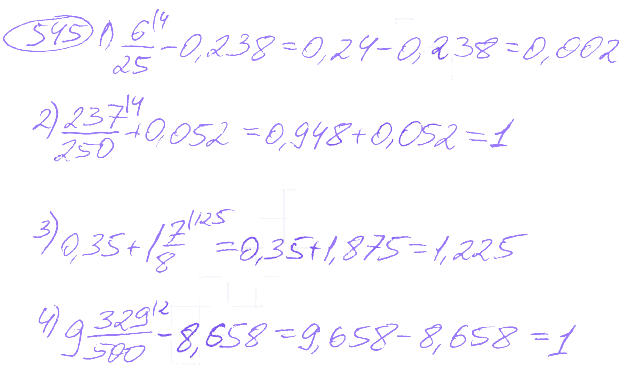 545 1) 6/25 |4 - 0,238 = 0,24 - 0,238 = 0,002
2) 237/250 |4 + 0,052 = 0,948 + 0,052 = 1
3) 0,35 + 1 7/8 |125 = 0,35 + 1,875 = 1,225
4) 9 329/500 |2 - 8,658 = 9,658 - 8,658 = 1